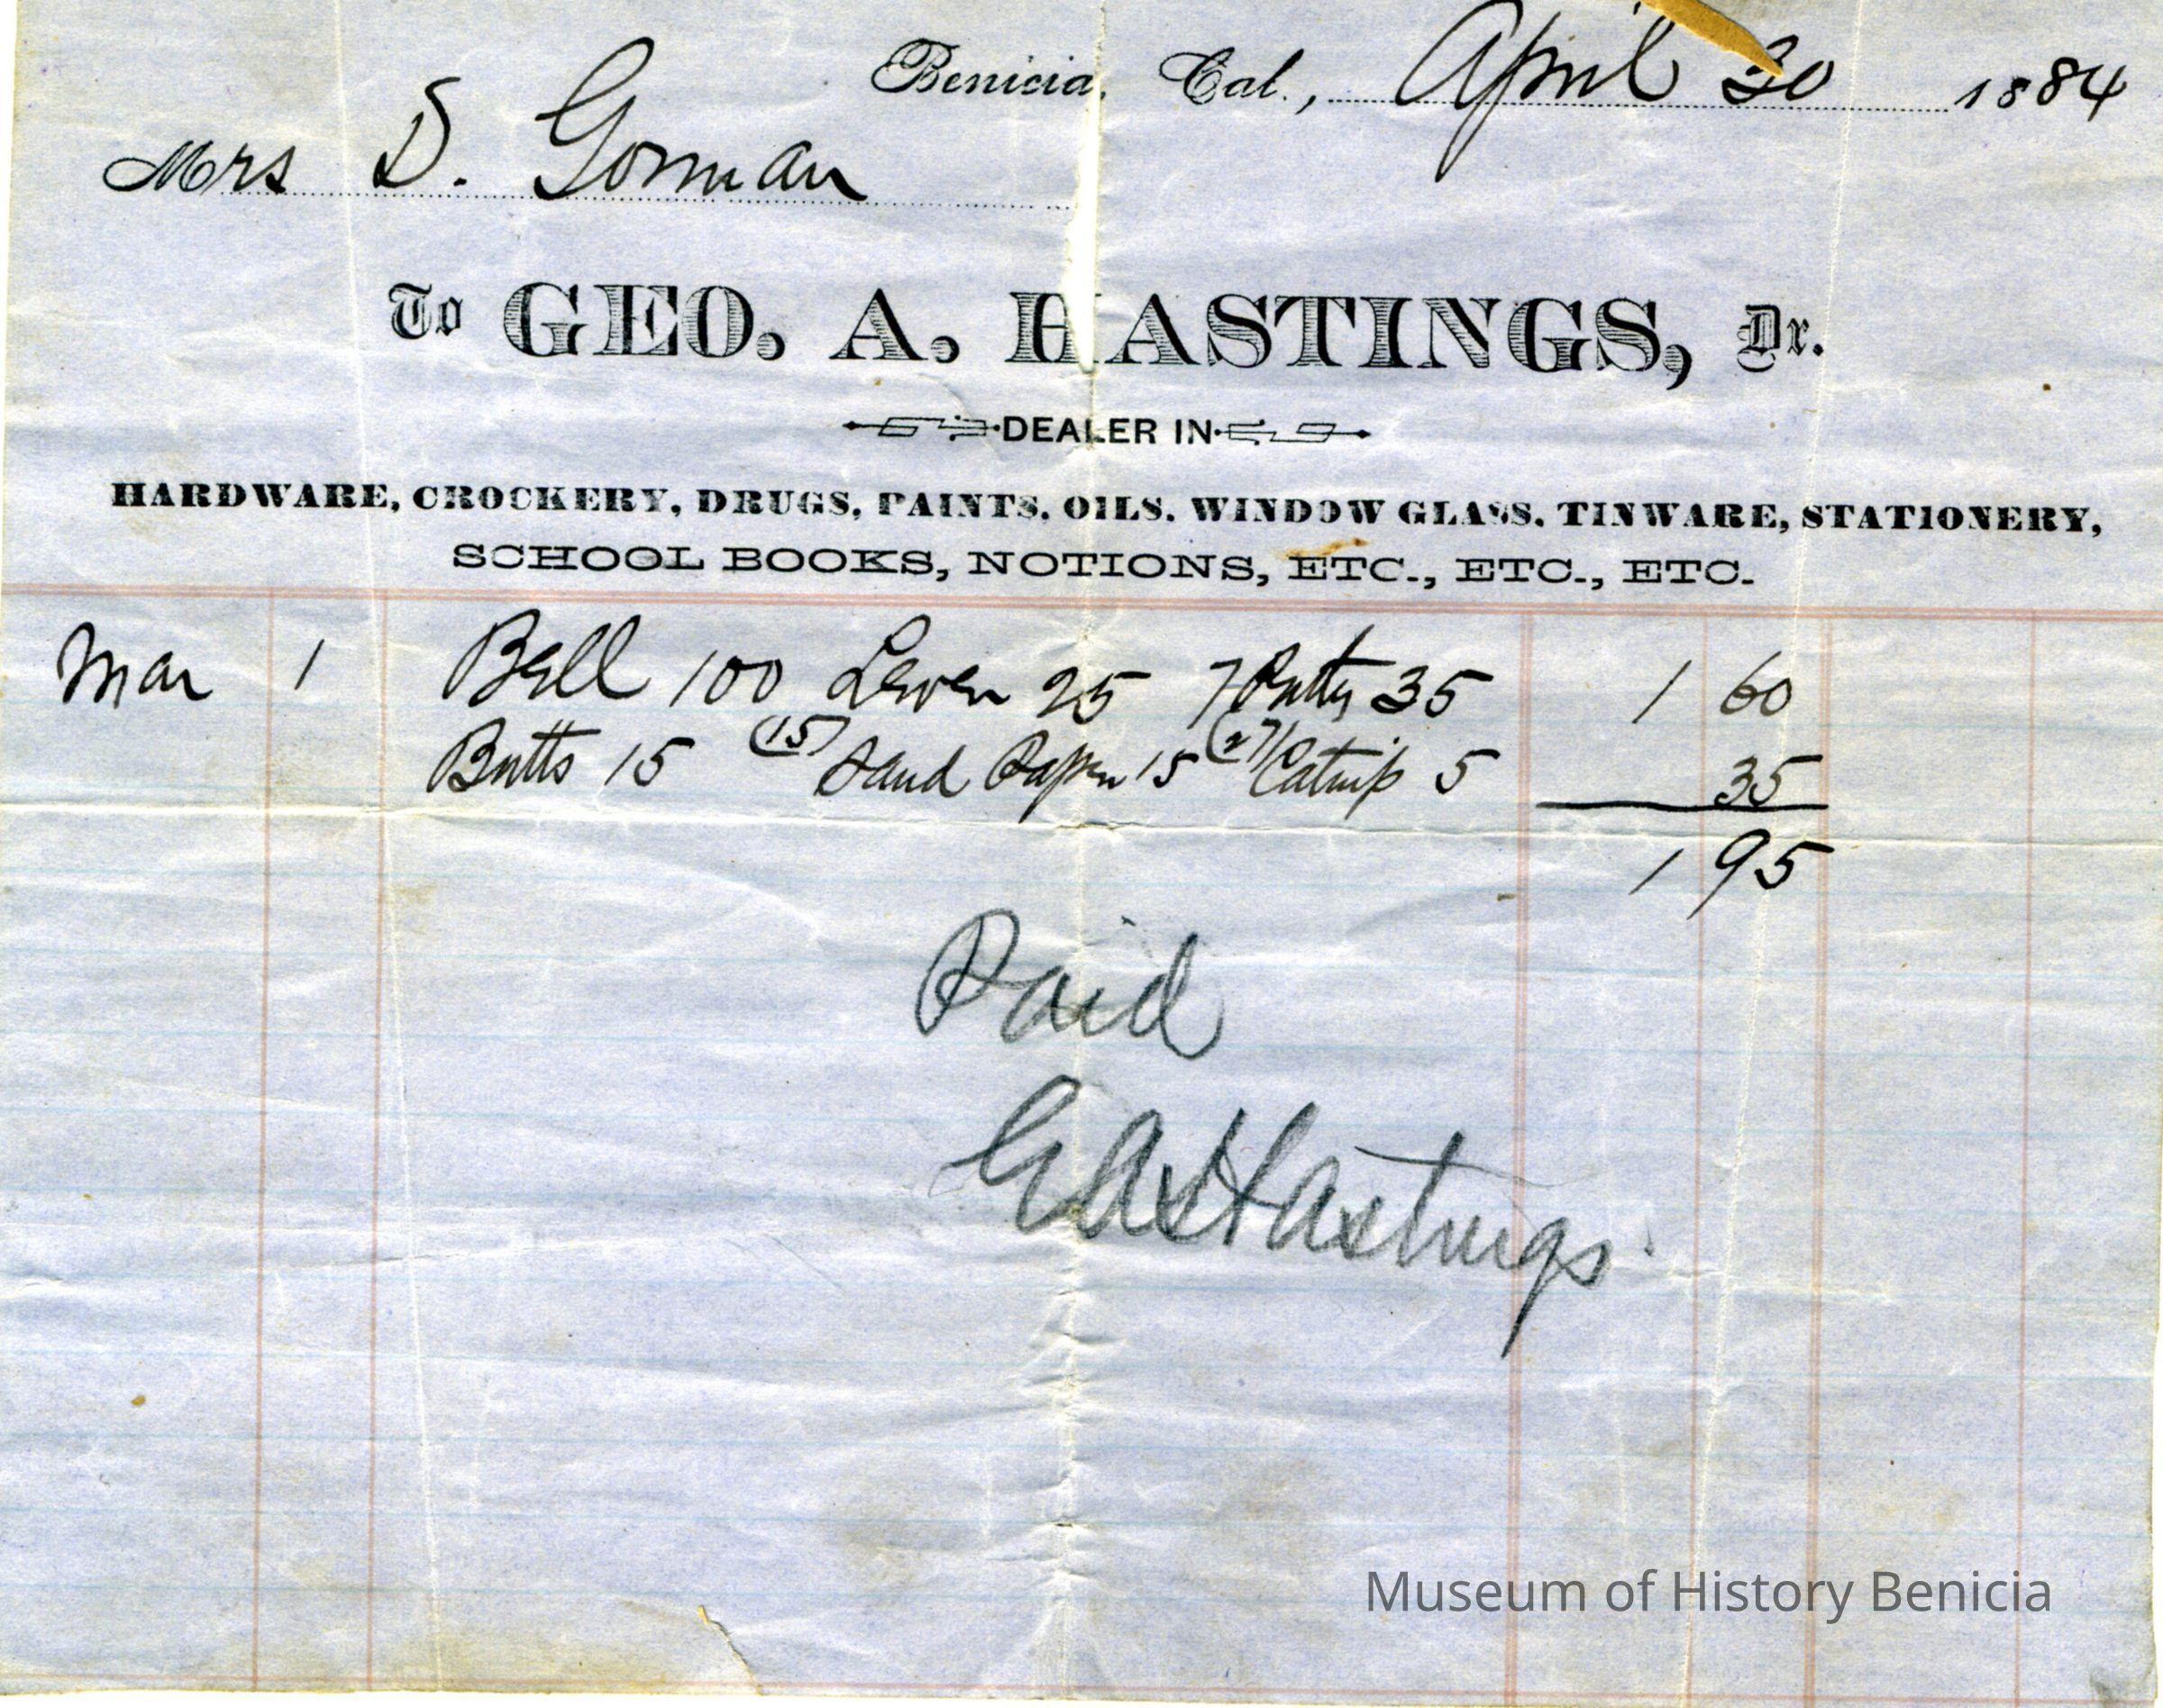 Benicia, Cal., April 30 1884
Mrs D. Gorman
To GEO. A. HASTINGS, Dr.
DEALER IN
HARDWARE, CROCKERY, DRUGS, PAINTS, OILS, WINDOW GLASS, TINWARE, STATIONERY,
SCHOOL BOOKS, NOTIONS, ETC., ETC., ETC.
Mar 1 Bell 100 Lever 25 7 Putty 35 1 60
Butts 15 (15) Sand Paper 15 (27) Catnip 5 35
1 95
Paid
GAHastings
Museum of History Benicia